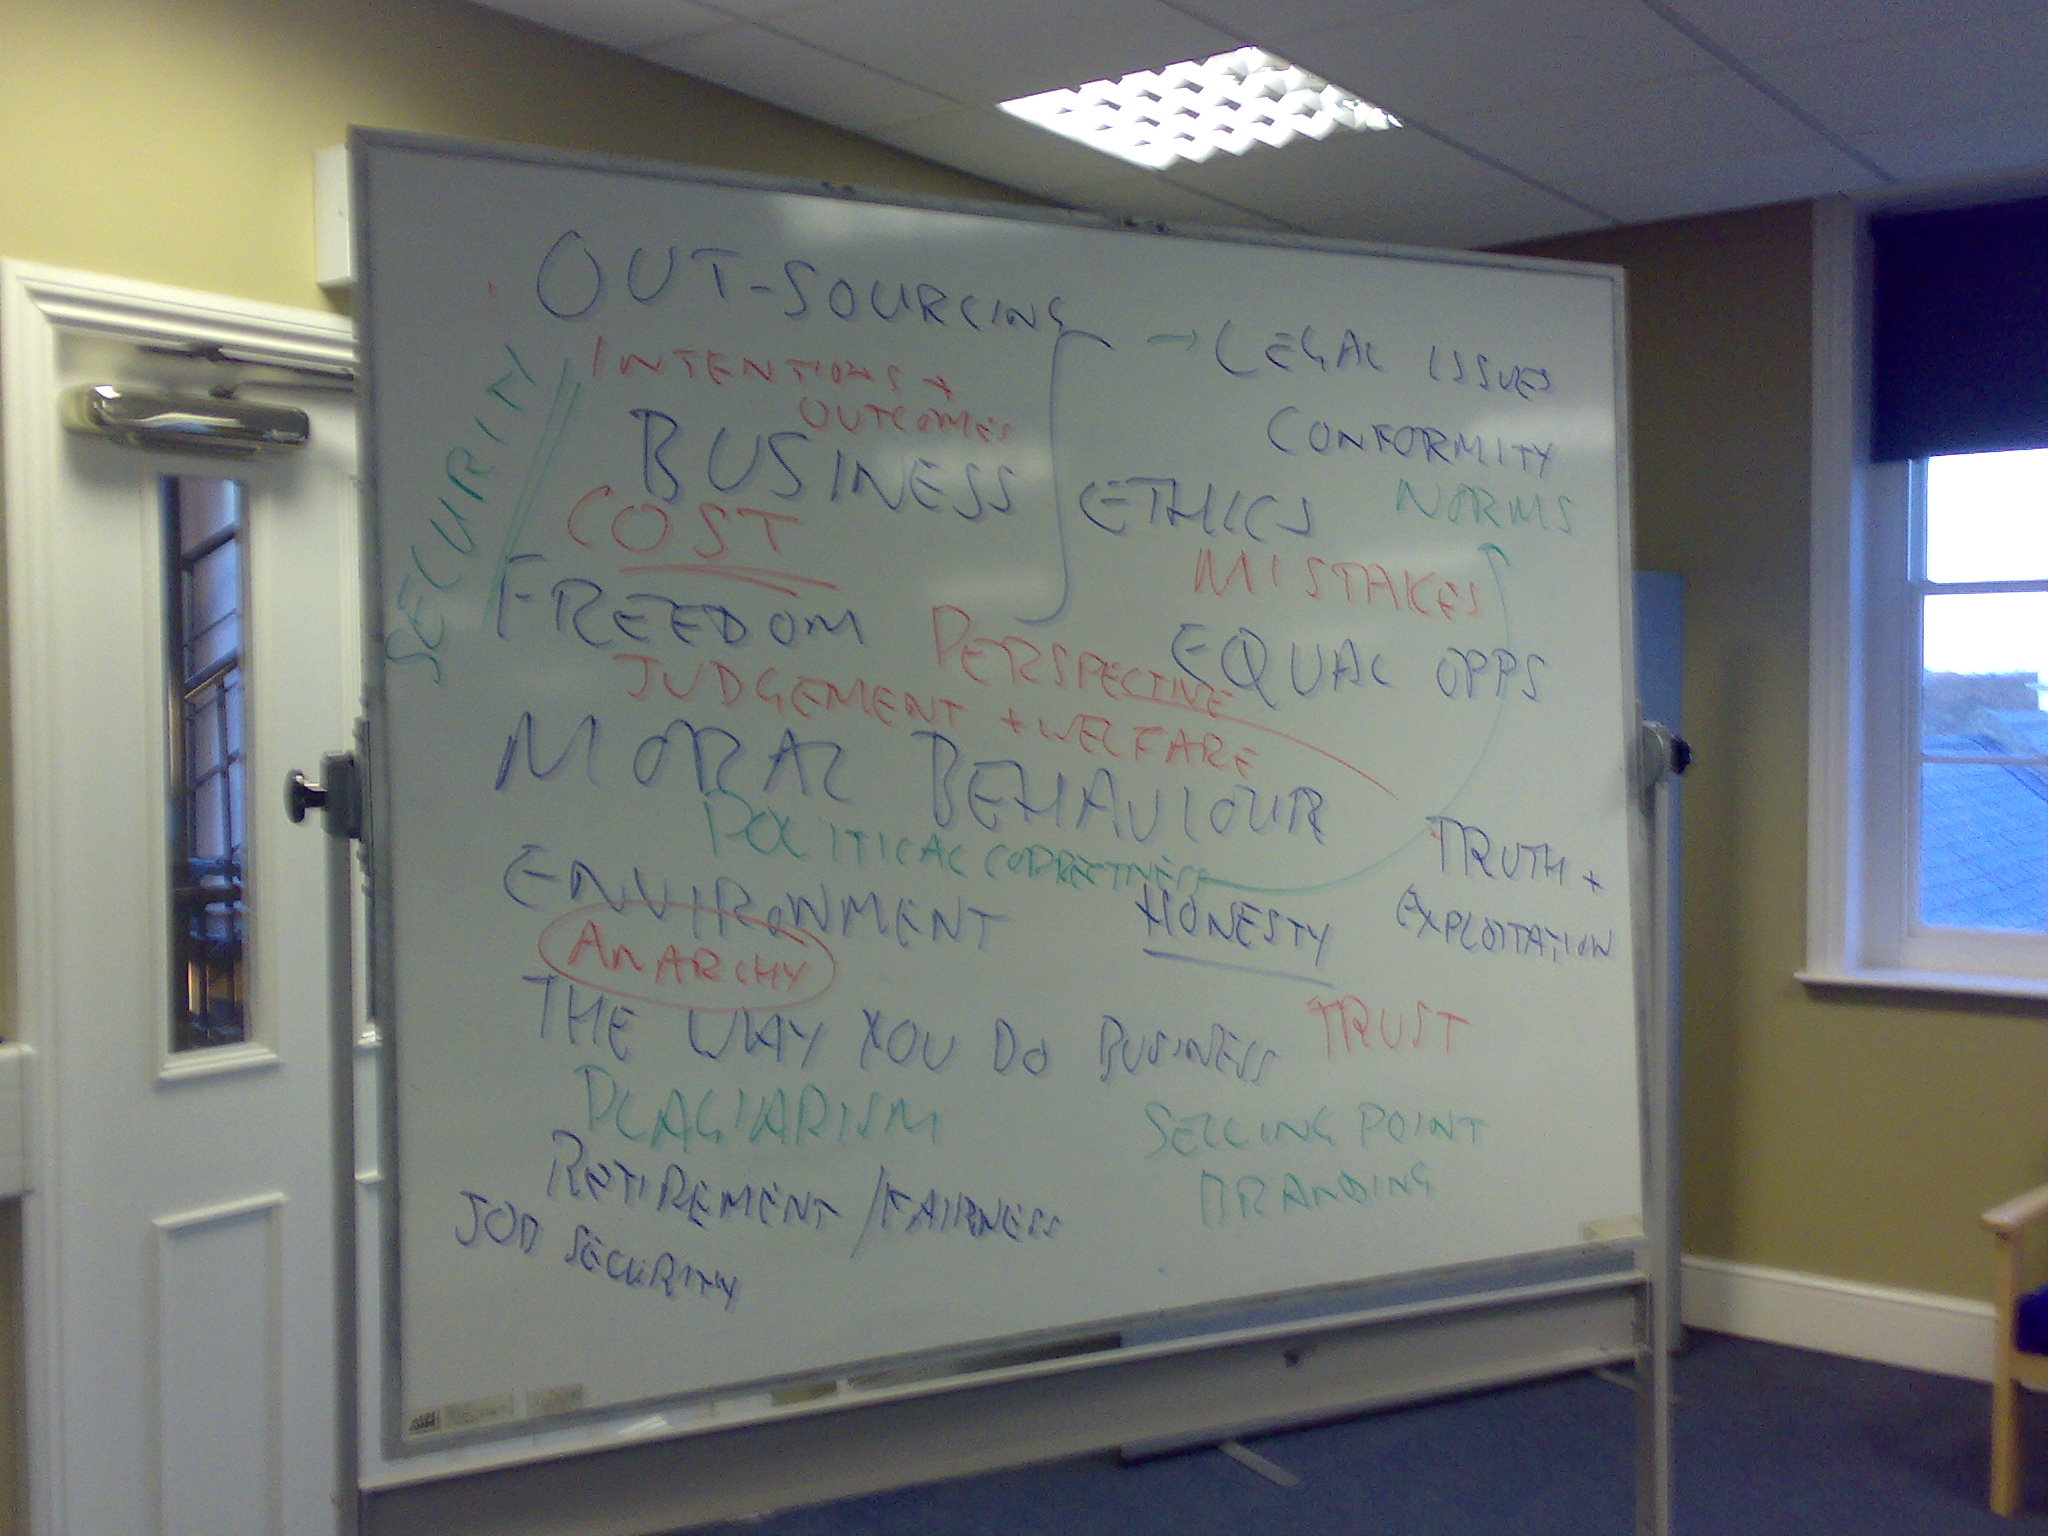 OUT-SOURCING
→ LEGAL ISSUES
SECURITY
INTENTIONS +
OUTCOMES
CONFORMITY
BUSINESS
ETHICS
NORMS
COST
MISTAKES
FREEDOM
PERSPECTIVE
EQUAL OPPS
JUDGEMENT + WELFARE
MORAL BEHAVIOUR
POLITICAL CORRECTNESS
TRUTH +
EXPLOITATION
ENVIRONMENT
HONESTY
ANARCHY
THE WAY YOU DO BUSINESS
TRUST
PLAGIARISM
SELLING POINT
BRANDING
RETIREMENT / FAIRNESS
JOB SECURITY